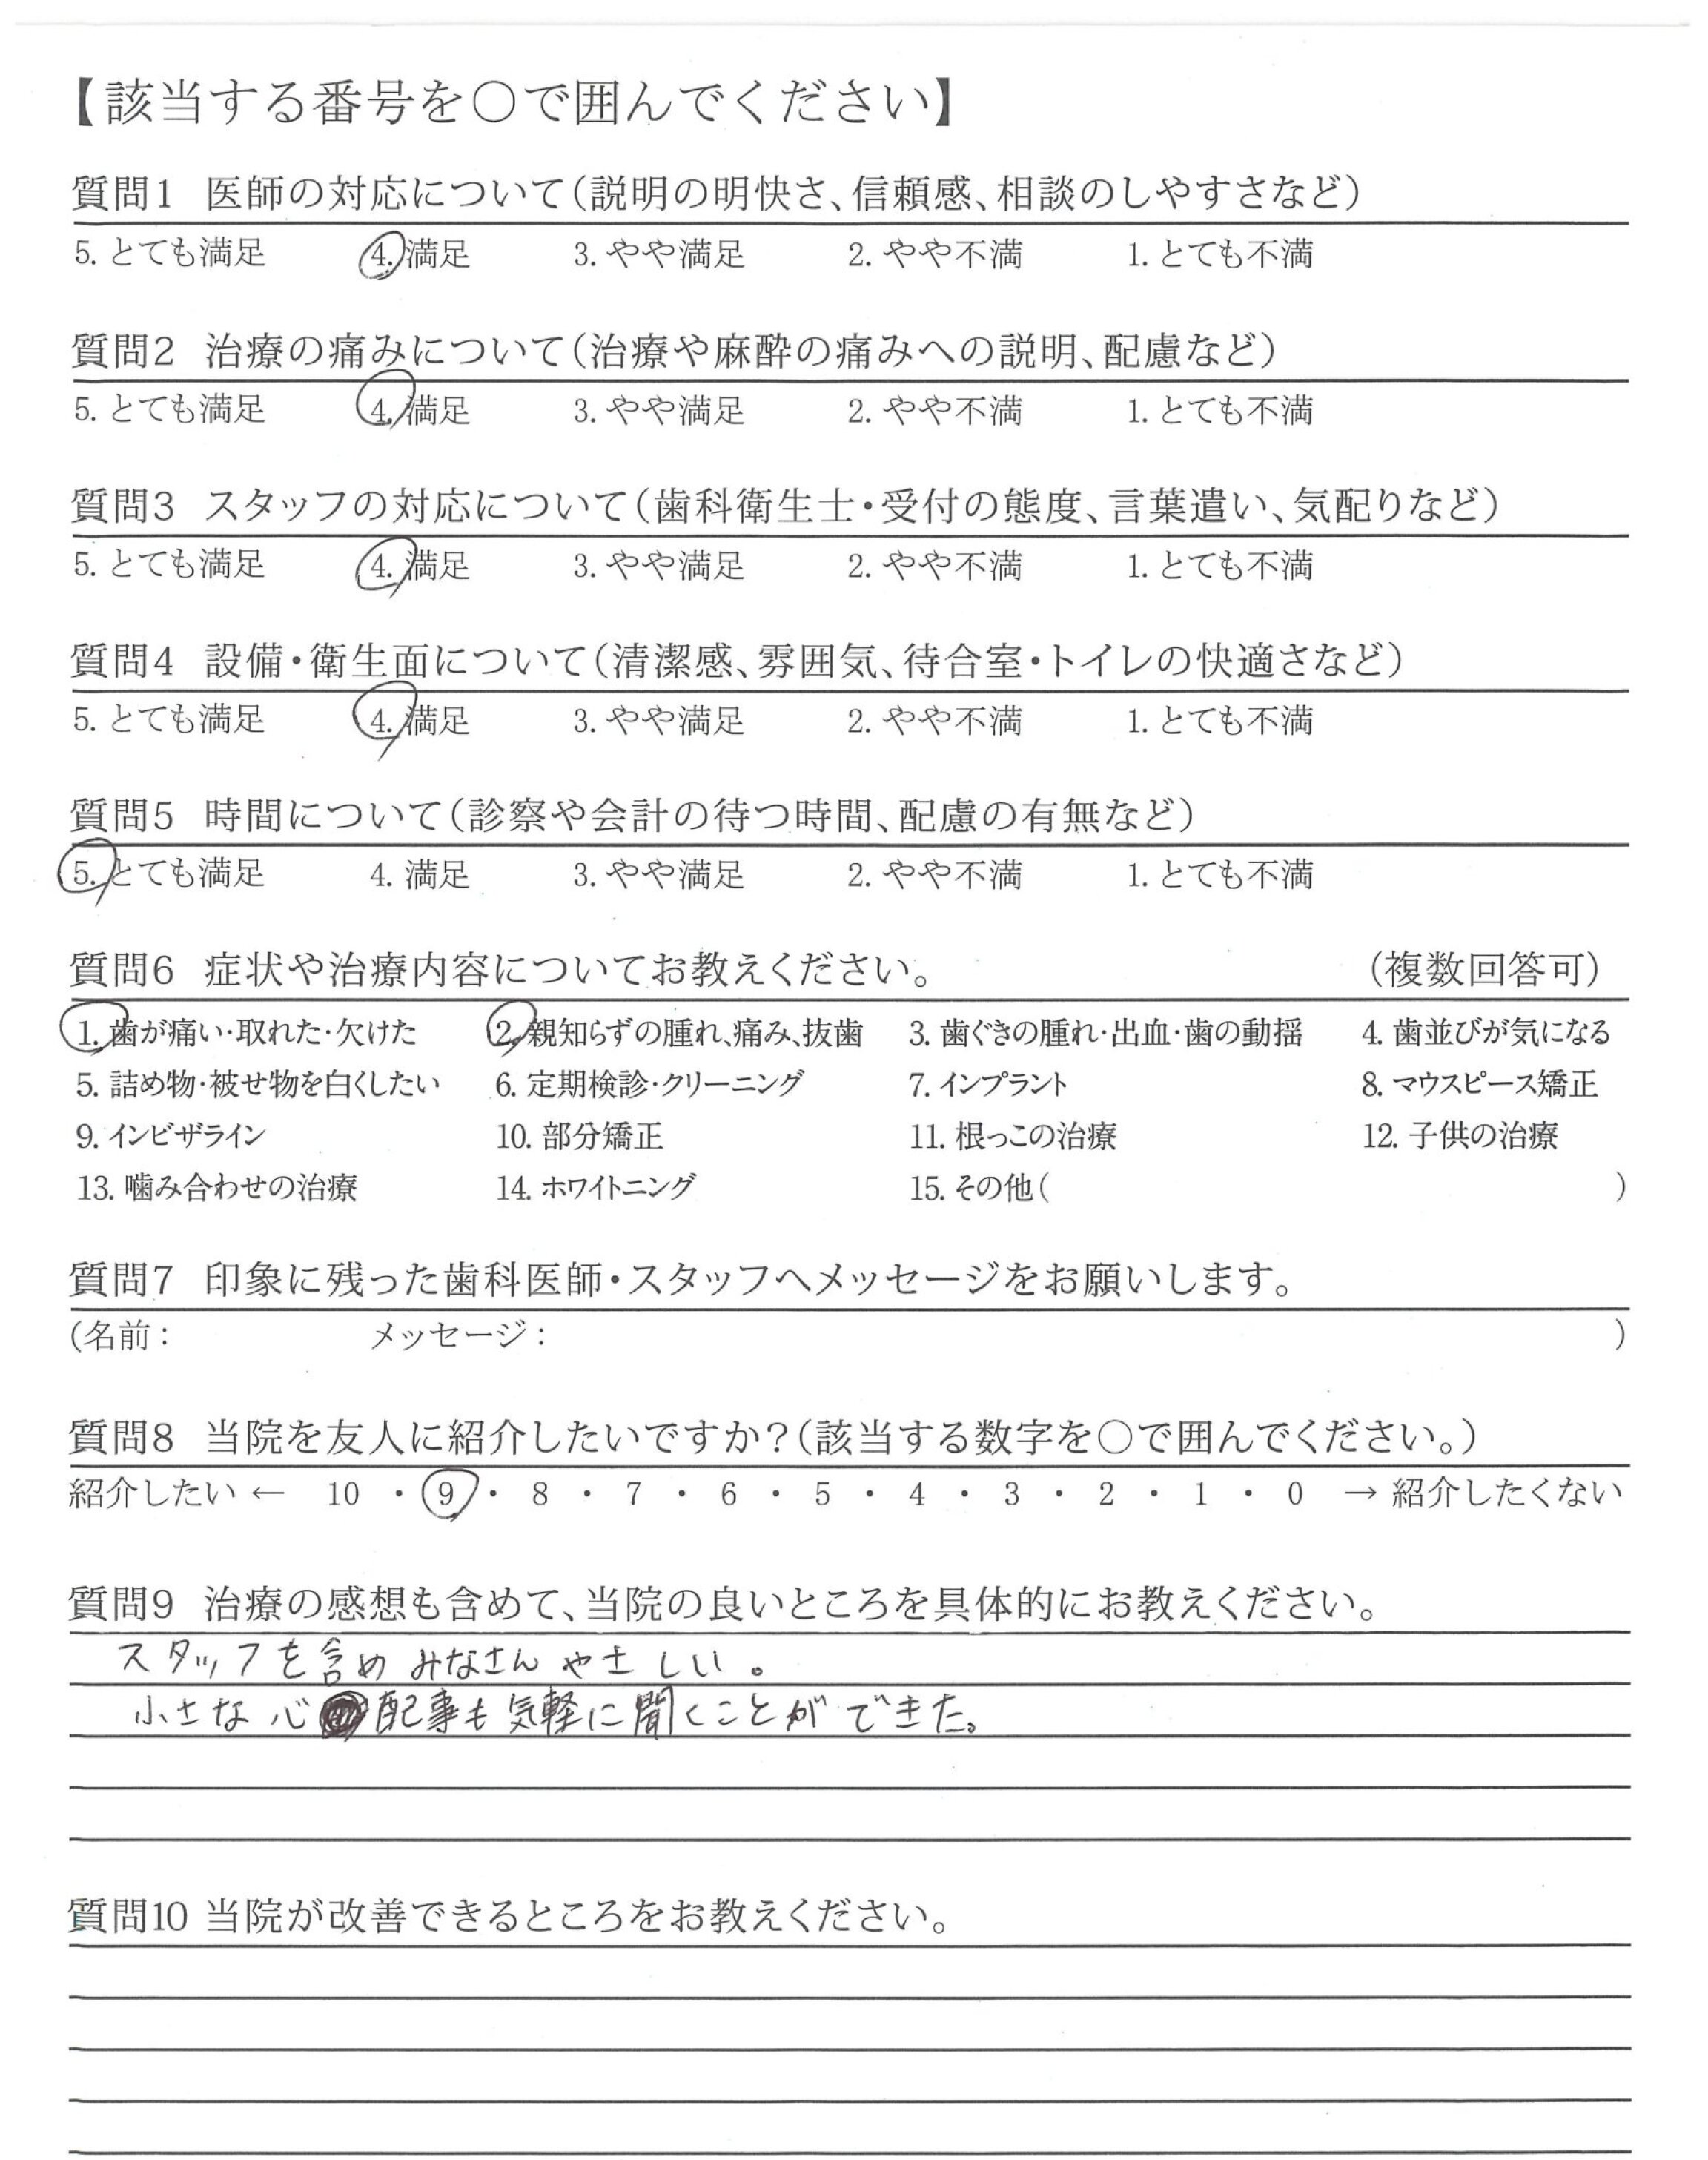 【該当する番号を〇で囲んでください】
質問1 医師の対応について(説明の明快さ、信頼感、相談のしやすさなど)
5. とても満足 4. 満足 3. やや満足 2. やや不満 1. とても不満
質問2 治療の痛みについて(治療や麻酔の痛みへの説明、配慮など)
5. とても満足 4. 満足 3. やや満足 2. やや不満 1. とても不満
質問3 スタッフの対応について(歯科衛生士・受付の態度、言葉遣い、気配りなど)
5. とても満足 4. 満足 3. やや満足 2. やや不満 1. とても不満
質問4 設備・衛生面について(清潔感、雰囲気、待合室・トイレの快適さなど)
5. とても満足 4. 満足 3. やや満足 2. やや不満 1. とても不満
質問5 時間について(診察や会計の待つ時間、配慮の有無など)
5. とても満足 4. 満足 3. やや満足 2. やや不満 1. とても不満
質問6 症状や治療内容についてお教えください。 (複数回答可)
1. 歯が痛い・取れた・欠けた 2. 親知らずの腫れ、痛み、抜歯 3. 歯ぐきの腫れ・出血・歯の動揺 4. 歯並びが気になる
5. 詰め物・被せ物を白くしたい 6. 定期検診・クリーニング 7. インプラント 8. マウスピース矯正
9. インビザライン 10. 部分矯正 11. 根っこの治療 12. 子供の治療
13. 噛み合わせの治療 14. ホワイトニング 15. その他( )
質問7 印象に残った歯科医師・スタッフへメッセージをお願いします。
(名前: メッセージ: )
質問8 当院を友人に紹介したいですか?(該当する数字を〇で囲んでください。)
紹介したい ← 10 ・ 9 ・ 8 ・ 7 ・ 6 ・ 5 ・ 4 ・ 3 ・ 2 ・ 1 ・ 0 → 紹介したくない
質問9 治療の感想も含めて、当院の良いところを具体的にお教えください。
スタッフを含め みなさん やさしい。
小さな心配事も気軽に聞くことができた。
質問10 当院が改善できるところをお教えください。